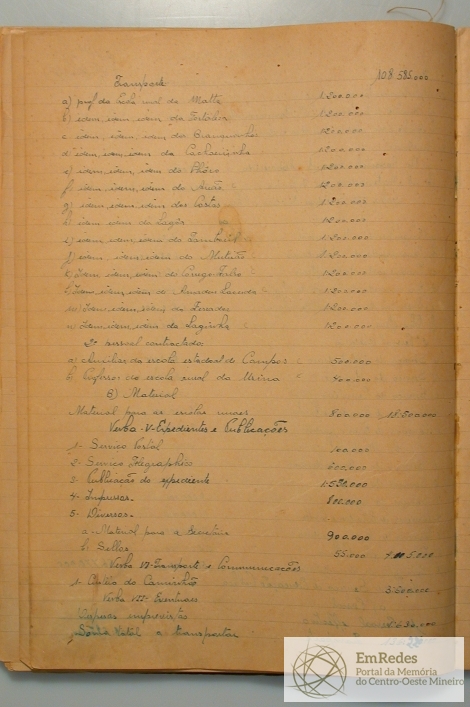 Transporte 108 585.000
a) prof. da Escola rural do Matta 1.200.000
b) idem, idem idem da 1.200.000
c idem, idem, idem dos 1.200.000
d idem, idem, idem da Cachoeirinha 1.200.000
e) idem, idem, idem do 1.200.000
f idem idem, idem do 1.200.000
g) idem idem idem dos Costas 1.200.000
h idem idem da Lagôa 1.200.000
i) idem, idem, idem do 1.200.000
j) idem idem idem do Mutuão 1.200.000
k) Idem idem, idem do Corrego 1.200.000
l) Idem idem, idem de Amador 1.200.000
m) Idem, idem, idem de 1.200.000
n) Idem, idem, idem da Laginha 1.200.000
2º pessoal contractado
a) Auxiliar da escola estadoal de Campos 500.000
b) Professor da escola rural do 400.000
B) Material
Material para as escolas ruraes 800.000 18.500.000
Verba - V - Expedientes e Publicações
1 - Serviço Postal 100.000
2 - Serviço Telegraphico 200.000
3 - Publicação do expediente 1.530.000
4 - Impressos 800.000
5 - Diversos
a - Material para a Secretaria 900.000
b - Sellos 55.000
Verba VI - Transporte e Communicações
1 - do Caminhão
Verba VII - Eventuaes
imprevistas
Somma total a transportar
EmRedes
Portal da Memória
do Centro-Oeste Mineiro